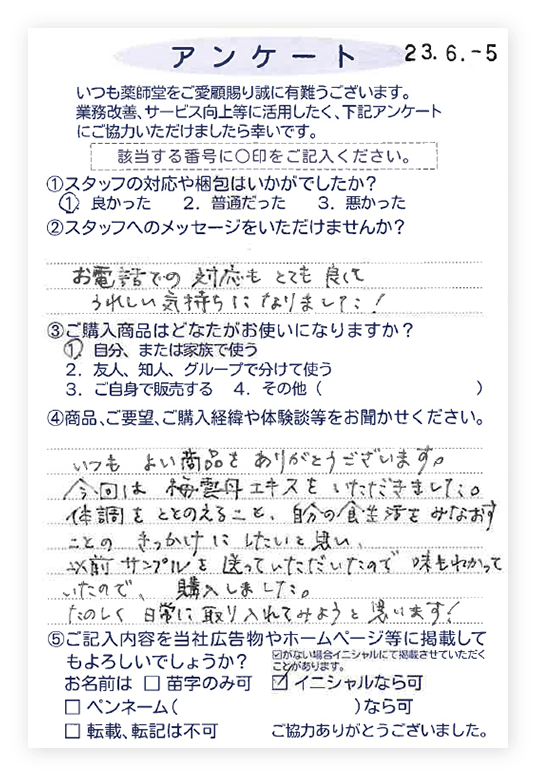 アンケート 23.6.-5
いつも薬師堂をご愛顧賜り誠に有難うございます。
業務改善、サービス向上等に活用したく、下記アンケート
にご協力いただけましたら幸いです。
該当する番号に○印をご記入ください。
①スタッフの対応や梱包はいかがでしたか？
1. 良かった 2. 普通だった 3. 悪かった
②スタッフへのメッセージをいただけませんか？
お電話での対応もとても良くて
うれしい気持ちになりました！
③ご購入商品はどなたがお使いになりますか？
1. 自分、または家族で使う
2. 友人、知人、グループで分けて使う
3. ご自身で販売する 4. その他（ ）
④商品、ご要望、ご購入経緯や体験談等をお聞かせください。
いつもよい商品をありがとうございます。
今回は梅雲丹エキスをいただきました。
体調をととのえること、自分の食生活をみなおす
ことのきっかけにしたいと思い、
以前サンプルを送っていただいたので味もわかって
いたので、購入しました。
たのしく日常に取り入れてみようと思います！
⑤ご記入内容を当社広告物やホームページ等に掲載して
もよろしいでしょうか？ ☑がない場合イニシャルにて掲載させていただく
ことがあります。
お名前は □ 苗字のみ可 ☑ イニシャルなら可
□ ペンネーム（ ）なら可
□ 転載、転記は不可 ご協力ありがとうございました。